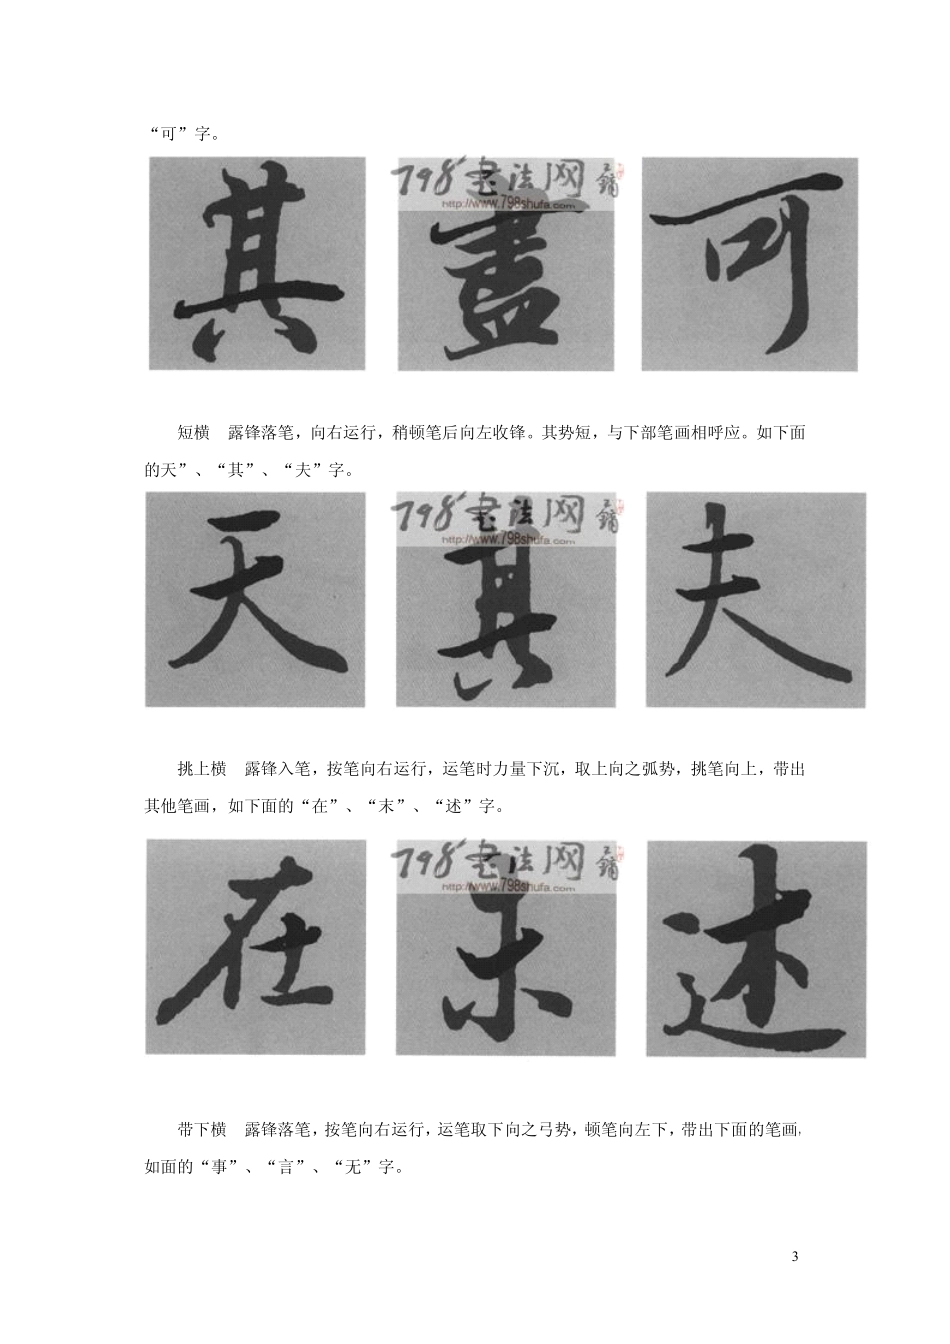 “可”字。
其 盡 可
798书法网
http://www.798shufa.com
短横　露锋落笔，向右运行，稍顿笔后向左收锋。其势短，与下部笔画相呼应。如下面
的天”、“其”、“夫”字。
天 其 夫
798书法网
http://www.798shufa.com
挑上横　露锋入笔，按笔向右运行，运笔时力量下沉，取上向之弧势，挑笔向上，带出
其他笔画，如下面的“在”、“末”、“述”字。
在 末 述
798书法网
http://www.798shufa.com
带下横　露锋落笔，按笔向右运行，运笔取下向之弓势，顿笔向左下，带出下面的笔画，
如面的“事”、“言”、“无”字。
3